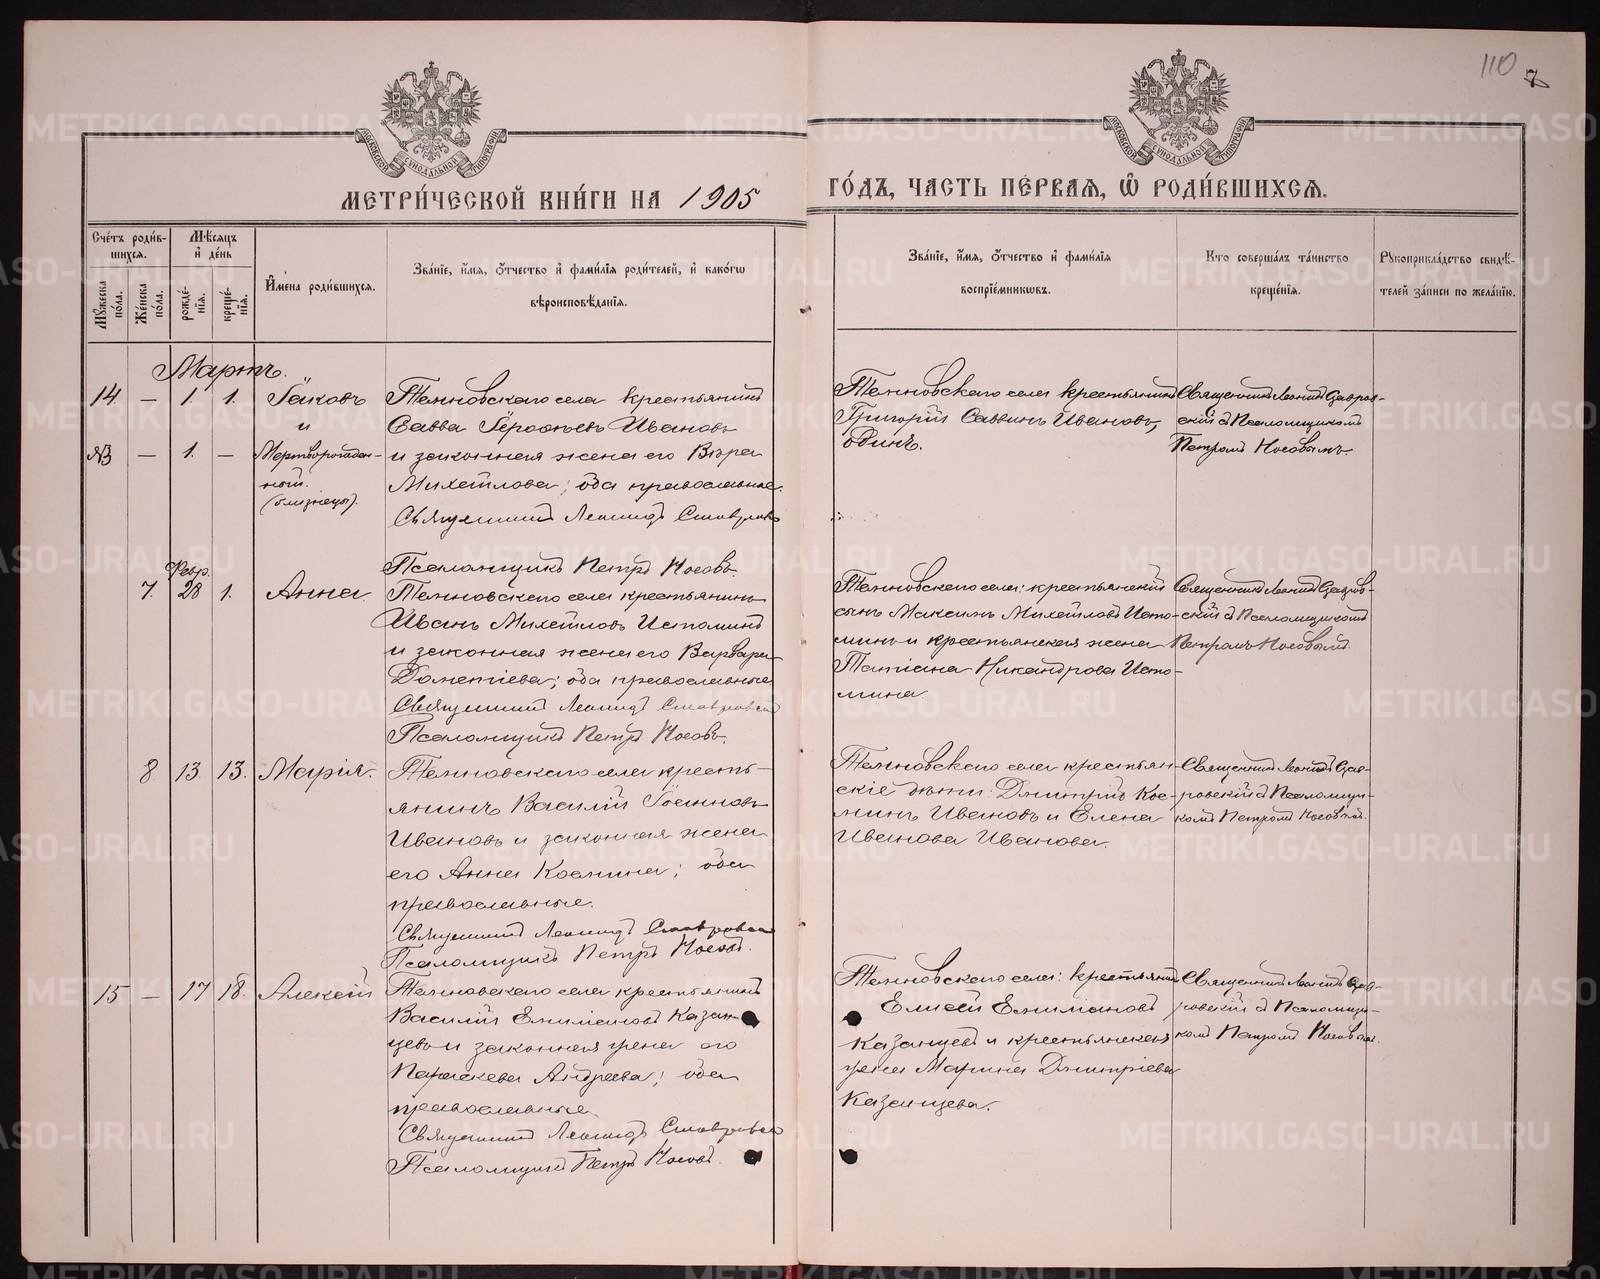 110
7
МЕТРИ́ЧЕСКОЙ КНИ́ГИ НА 1905
ГО́ДЪ, ЧАСТЬ ПЕ́РВАЯ, Ѿ РОДИ́ВШИХСЯ.
Сче́тъ роди́в-
шихся.
Му́жеска по́ла.
Же́нска по́ла.
Мѣ́сяцъ
и҆ де́нь
рожде́нїя.
креще́нїя.
И҆мена̀ роди́вшихся.
Зва́нїе, и҆́мя, ѻ҆́тчество и҆ фами́лїя роди́телей, и҆ како́гѡ
вѣроисповѣ́данїя.
Зва́нїе, и҆́мя, ѻ҆́тчество и҆ фами́лїя
воспрїе́мникѡвъ.
Кто̀ соверша́лъ та́инство
креще́нїя.
Рꙋкоприкла́дство свидѣ́-
телей за́писи по жела́нїю.
Мартъ.
14. — 1. 1. Іаковъ
и
— 1. — Мертворожден-
ный.
(близнецы).
Темновскаго села крестьянинъ
Савва Іерофѣевъ Ивановъ
и законная жена его Вѣра
Михайлова; оба православные.
Священникъ Леонидъ Ставровскій
Псаломщикъ Петръ Носовъ.
Темновскаго села крестьянинъ
Григорій Саввинъ Ивановъ,
одинъ.
Священникъ Леонидъ Ставров-
скій съ Псаломщикомъ
Петромъ Носовымъ.
7. Февр. 28 1. Анна.
Темновскаго села крестьянинъ
Иванъ Михайловъ Истоминъ
и законная жена его Варвара
Дометіева; оба православные
Священникъ Леонидъ Ставровскій
Псаломщикъ Петръ Носовъ.
Темновскаго села: крестьянскій
сынъ Максимъ Михайловъ Исто-
минъ и крестьянская жена
Татіана Никандрова Исто-
мина
Священникъ Леонидъ Ставров-
скій съ Псаломщикомъ
Петромъ Носовымъ.
8. 13. 13. Марія.
Темновскаго села кресть-
янинъ Василій Іоанновъ
Ивановъ и законная жена
его Анна Космина; оба
православные.
Священникъ Леонидъ Ставровскій
Псаломщикъ Петръ Носовъ.
Темновскаго села крестьян-
скіе дѣти: Дмитрій Кос-
минъ Ивановъ и Елена
Иванова Иванова.
Священникъ Леонидъ Став-
ровскій съ Псаломщи-
комъ Петромъ Носовымъ.
15 — 17 18. Алексій
Темновскаго села крестьянинъ
Василій Епимаховъ Казан-
цевъ и законная жена его
Параскева Андреева; оба
православные
Священникъ Леонидъ Ставровскій
Псаломщикъ Петръ Носовъ.
Темновскаго села: крестьянинъ
Елисей Епимаховъ
Казанцевъ и крестьянская
жена Марина Дмитріева
Казанцева.
Священникъ Леонидъ Став-
ровскій съ Псаломщи-
комъ Петромъ Носовымъ.
METRIKI.GASO-URAL.RU